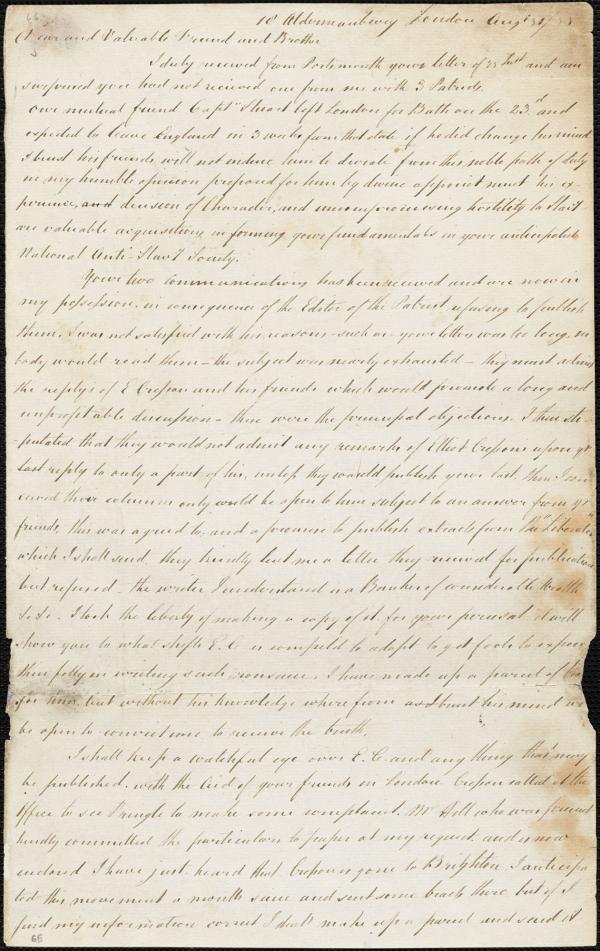 18 Aldermanbury London Augt 31/33
Dear and Valuable Friend and Brother
I duly received from Portsmouth yours letter of 23 Inst and am
surprised you had not received one from me with 3 Patriots.
Our mutual friend Captn Stuart left London for Bath on the 23d and
expected to leave England in 3 weeks from that date if he did change his mind
I trust his friends will not induce him to deviate from this noble path of duty
in my humble opinion prepared for him by divine appointment his ex-
perience, and decision of Character, and uncompromising hostility to Slavy
are valuable acquisitions in forming your fundamentals in your anticipated
National Anti-Slavy Society.
Your two communications has been received and are now in
my possession, in consequence of the Editor of the Patriot refusing to publish
them, I was not satisfied with his reasons - such as - your letters was too long, no
body would read them - the subject was nearly exhausted - they must admit
the reply's of E Cresson and his friends which would promote a long and
unprofitable discussion - these were the principal objections. I then sti-
-pulated that they would not admit any remarks of Elliot Cressons upon yr
last reply to only a part of his, unless they would publish your last, then I con-
ceived their columns only would be open to him subject to an answer from yr
friends, this was agreed to, and a promise to publish extracts from the Liberator
which I shall send. they kindly lent me a letter they received for publication
but refused - the writer I understand is a Banker of considerable wealth
&c &c. I took the liberty of making a copy of it for your perusal. it will
show you to what shifts E.C. is compeld to adopt to get fools to expose
their folly in writing such nonsense. I have made up a parcel of
for him, but without his knowledge where from as I trust his mind
be open to conviction to receive the truth.
I shall keep a watchful eye over E.C. and any thing that may
be published. with the aid of your friends in London Cresson called at the
Office to see Pringle to make some complaint. Mr Hill who was present
kindly committed the particulars to paper at my request and is now
enclosed I have just heard that Cresson is gone to Brighton. I anticipa
ted this movement a month since and sent some tracts there but if I
find my information correct I shall make up a parcel and send it
65